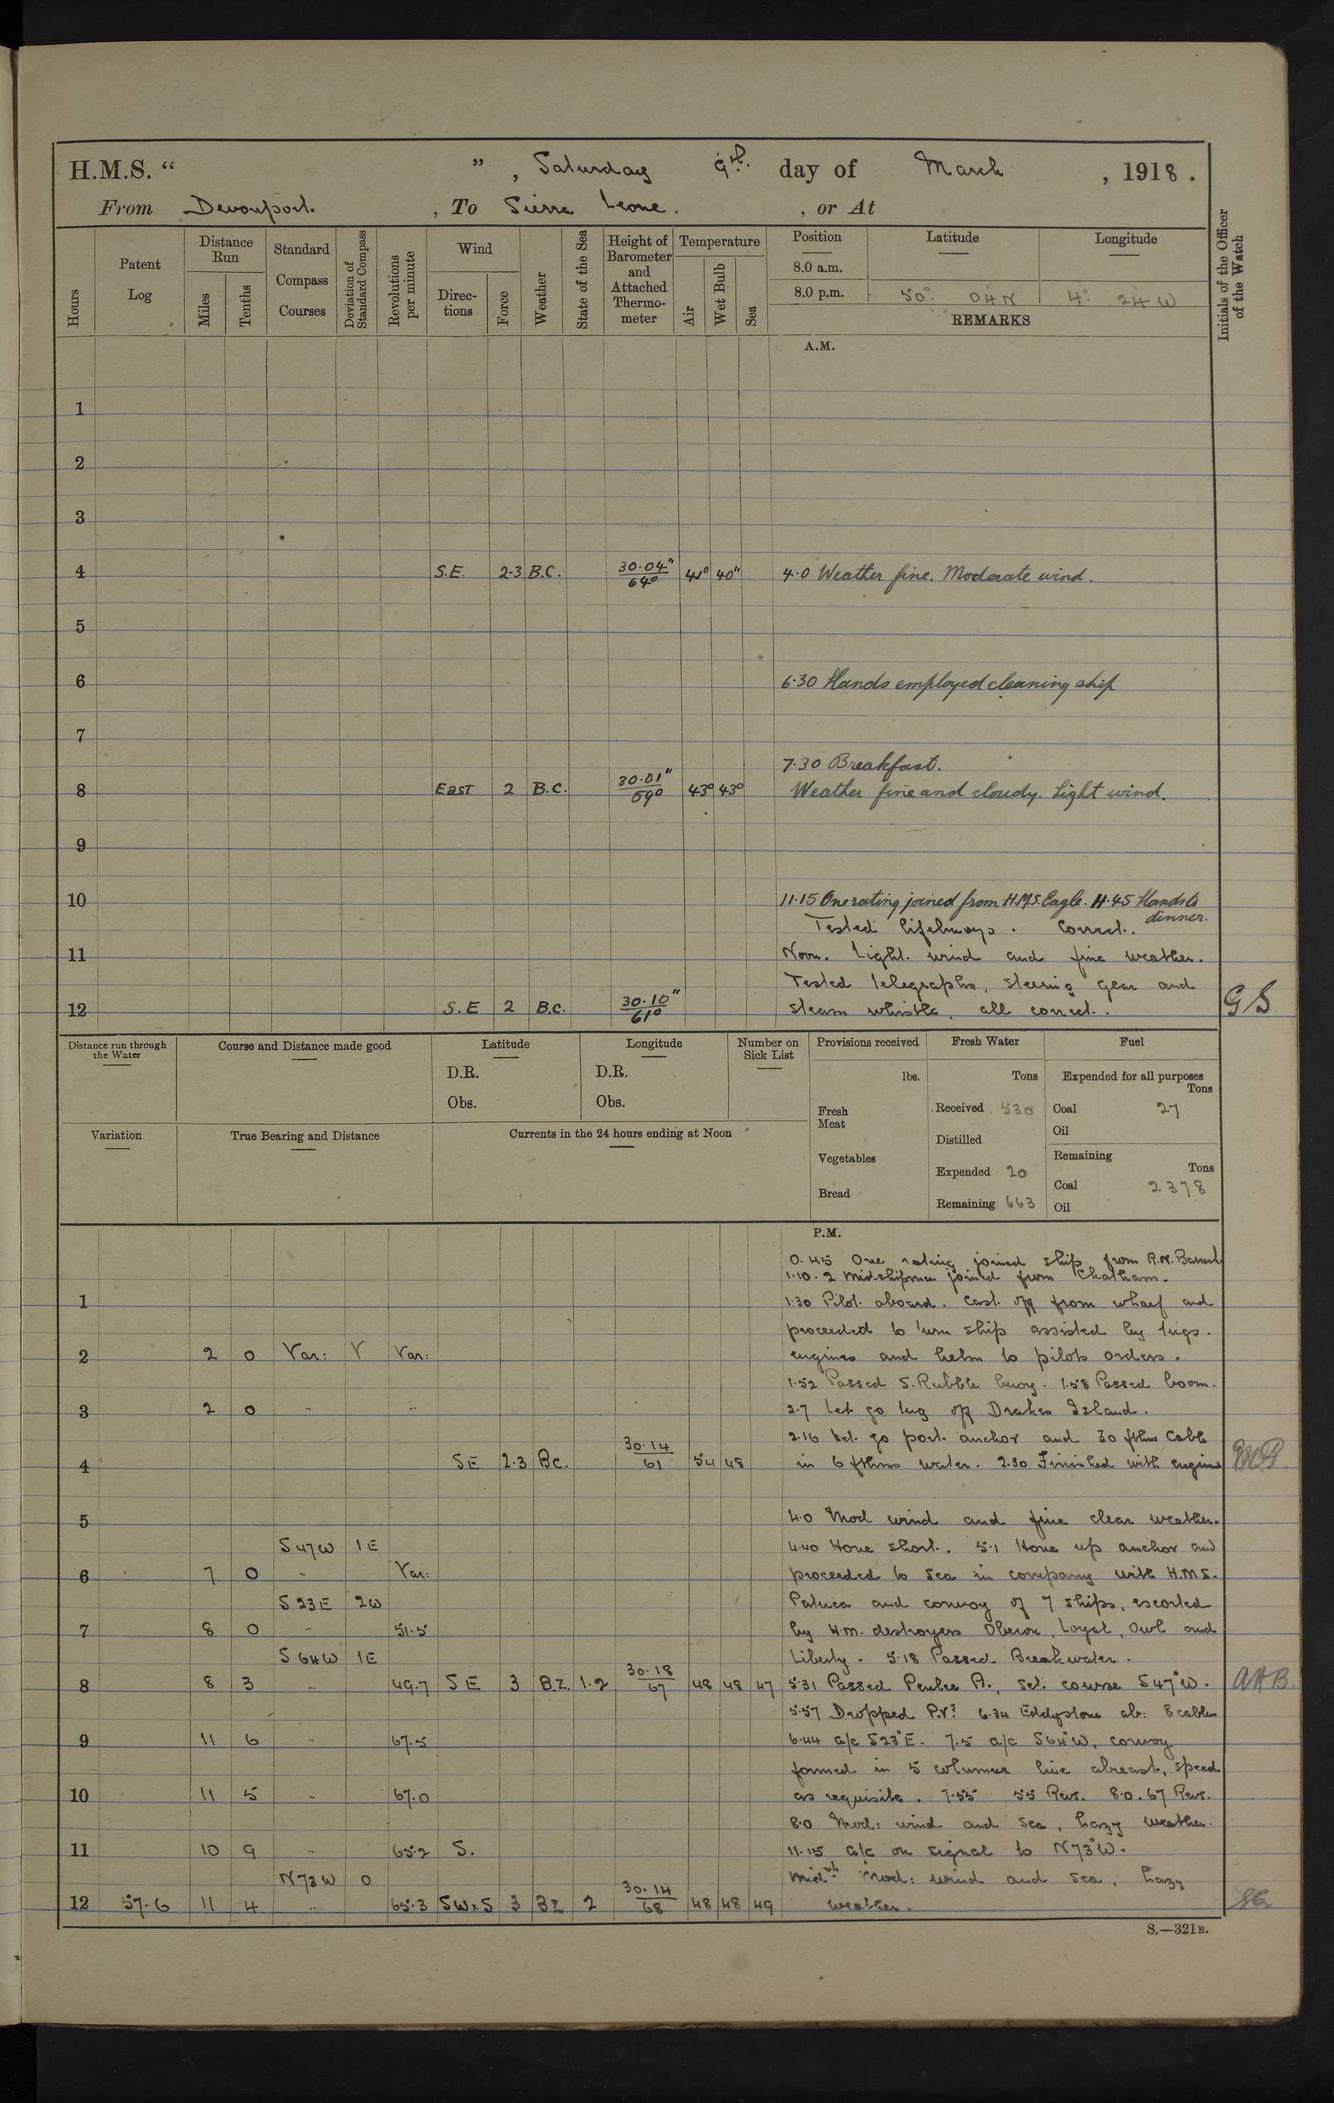 H.M.S. “ ” , Saturday 9th. day of March , 1918.
From Devonport. , To Sierra Leone. , or At
Hours
Patent Log
Distance Run
Miles
Tenths
Standard Compass Courses
Deviation of Standard Compass
Revolutions per minute
Wind
Direc-tions
Force
Weather
State of the Sea
Height of Barometer and Attached Thermo-meter
Temperature
Air
Wet Bulb
Sea
Position Latitude Longitude
8.0 a.m.
8.0 p.m. 50° 04 N 4° 24 W
REMARKS
Initials of the Officer of the Watch
A.M.
1
2
3
4 S.E. 2·3 B.C. 30·04"/64° 41° 40" 4·0 Weather fine. Moderate wind.
5
6 6·30 Hands employed cleaning ship
7
7·30 Breakfast.
8 East 2 B.C. 30·01"/59° 43° 43° Weather fine and cloudy. Light wind.
9
10 11·15 One rating joined from H.M.S. Eagle. 11·45 Hands to dinner.
Tested lifebuoys. Correct.
11 Noon. Light wind and fine weather.
Tested telegraphs, steering gear and
12 S.E 2 B.C. 30·10"/61° steam whistle, all correct. GS
Distance run through the Water
Course and Distance made good
Latitude
D.R.
Obs.
Longitude
D.R.
Obs.
Number on Sick List
Provisions received
lbs.
Fresh Meat
Vegetables
Bread
Fresh Water
Tons
Received 530
Distilled
Expended 20
Remaining 663
Fuel
Expended for all purposes
Tons
Coal 27
Oil
Remaining
Tons
Coal 2378
Oil
Variation
True Bearing and Distance
Currents in the 24 hours ending at Noon
P.M.
0.45 One rating joined ship from R.N. Barracks
1·10 - 2 midshipmen joined from Chatham.
1 1·30 Pilot aboard. Cast off from wharf and
proceeded to turn ship assisted by tugs.
2 2 0 Var: V Var: engines and helm to pilots orders.
1·52 Passed S. Rubble buoy. 1·58 Passed boom.
3 2 0 " " 2·7 Let go tug off Drakes Island.
2·16 Let go port anchor and 30 fthms cable
4 SE 2·3 Bc. 30·14/61 54 48 in 6 fthms water. 2·30 Finished with engines
5 4·0 Mod wind and fine clear weather.
S47W 1E 4·40 Hove short. 5·1 Hove up anchor and
6 7 0 " Var: proceeded to sea in company with H.M.S.
S23E 2W Patuca and convoy of 7 ships, escorted
7 8 0 " 51·5 by H.M. destroyers Oberon, Loyal, Owl and
S64W 1E Liberty. 5·18 Passed Breakwater.
8 8 3 " 49·7 SE 3 B.Z. 1·2 30·18/67 48 48 47 5·31 Passed Penlee Pt., set course S47°W. AHB.
5·57 Dropped P.Vs 6·34 Eddystone ab: 8 cables
9 11 6 " 67·5 6·44 a/c S23°E. 7·5 a/c S64°W, convoy
formed in 5 columns line abreast, speed
10 11 5 " 67·0 as requisite. 7·55 55 Revs. 8·0. 67 Revs.
8·0 Mod: wind and sea, hazy weather.
11 10 9 " 65·2 S. 11·15 a/c on signal to N73°W.
N73W 0 Midnt. Mod: wind and sea, hazy
12 57·6 11 4 " 65·3 SWxS 3 BZ 2 30·14/68 48 48 49 weather.
S.—321B.